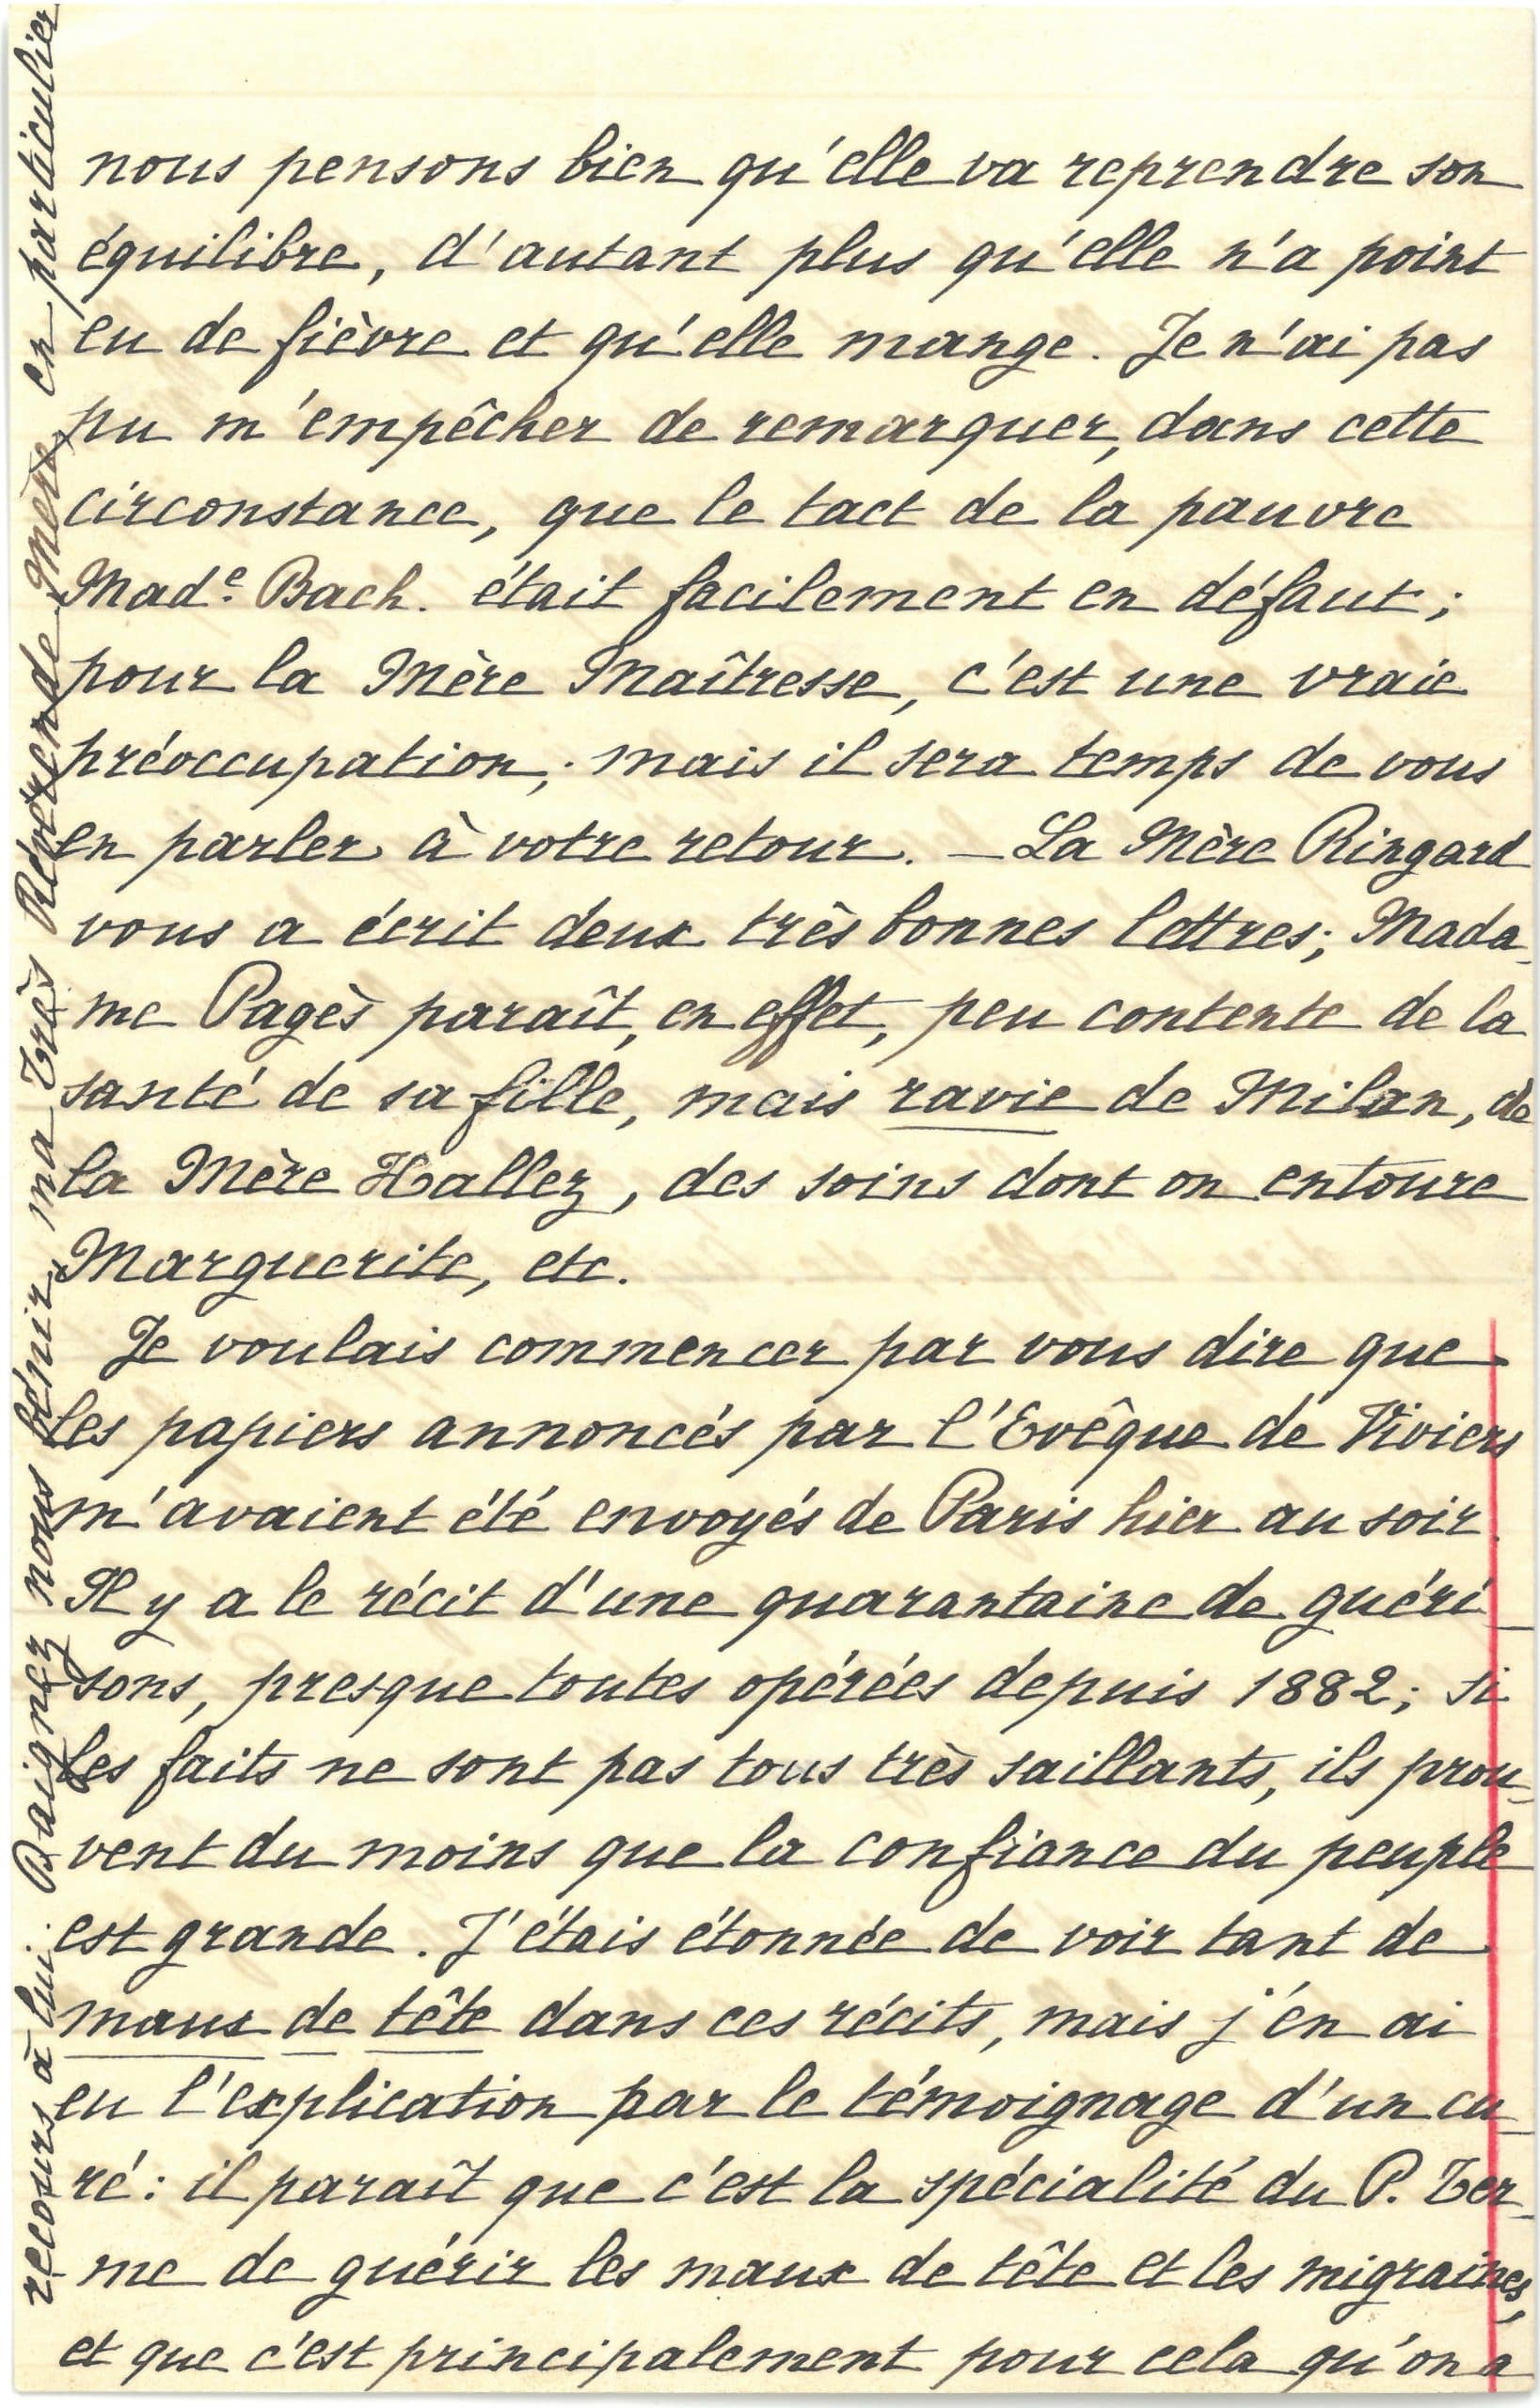 nous pensons bien qu'elle va reprendre son
équilibre, d'autant plus qu'elle n'a point
eu de fièvre et qu'elle mange. Je n'ai pas
pu m'empêcher de remarquer, dans cette
circonstance, que le tact de la pauvre
Madᵉ. Bach. était facilement en défaut;
pour la Mère Maîtresse, c'est une vraie
préoccupation; mais il sera temps de vous
en parler à votre retour. — La Mère Ringard
vous a écrit deux très bonnes lettres; Mada-
me Pagès paraît, en effet, peu contente de la
santé de sa fille, mais ravie de Milan, de
la Mère Hallez, des soins dont on entoure
Marguerite, etc.
Je voulais commencer par vous dire que
les papiers annoncés par l'Evêque de Viviers
m'avaient été envoyés de Paris hier au soir.
Il y a le récit d'une quarantaine de guéri-
sons, presque toutes opérées depuis 1882; si
les faits ne sont pas tous très saillants, ils prou-
vent du moins que la confiance du peuple
est grande. J'étais étonnée de voir tant de
maux de tête dans ces récits, mais j'en ai
eu l'explication par le témoignage d'un cu-
ré: il paraît que c'est la spécialité du P. Ter-
me de guérir les maux de tête et les migraines,
et que c'est principalement pour cela qu'on a
recours à lui. Daignez nous bénir, ma Très Révérende Mère, en particulier